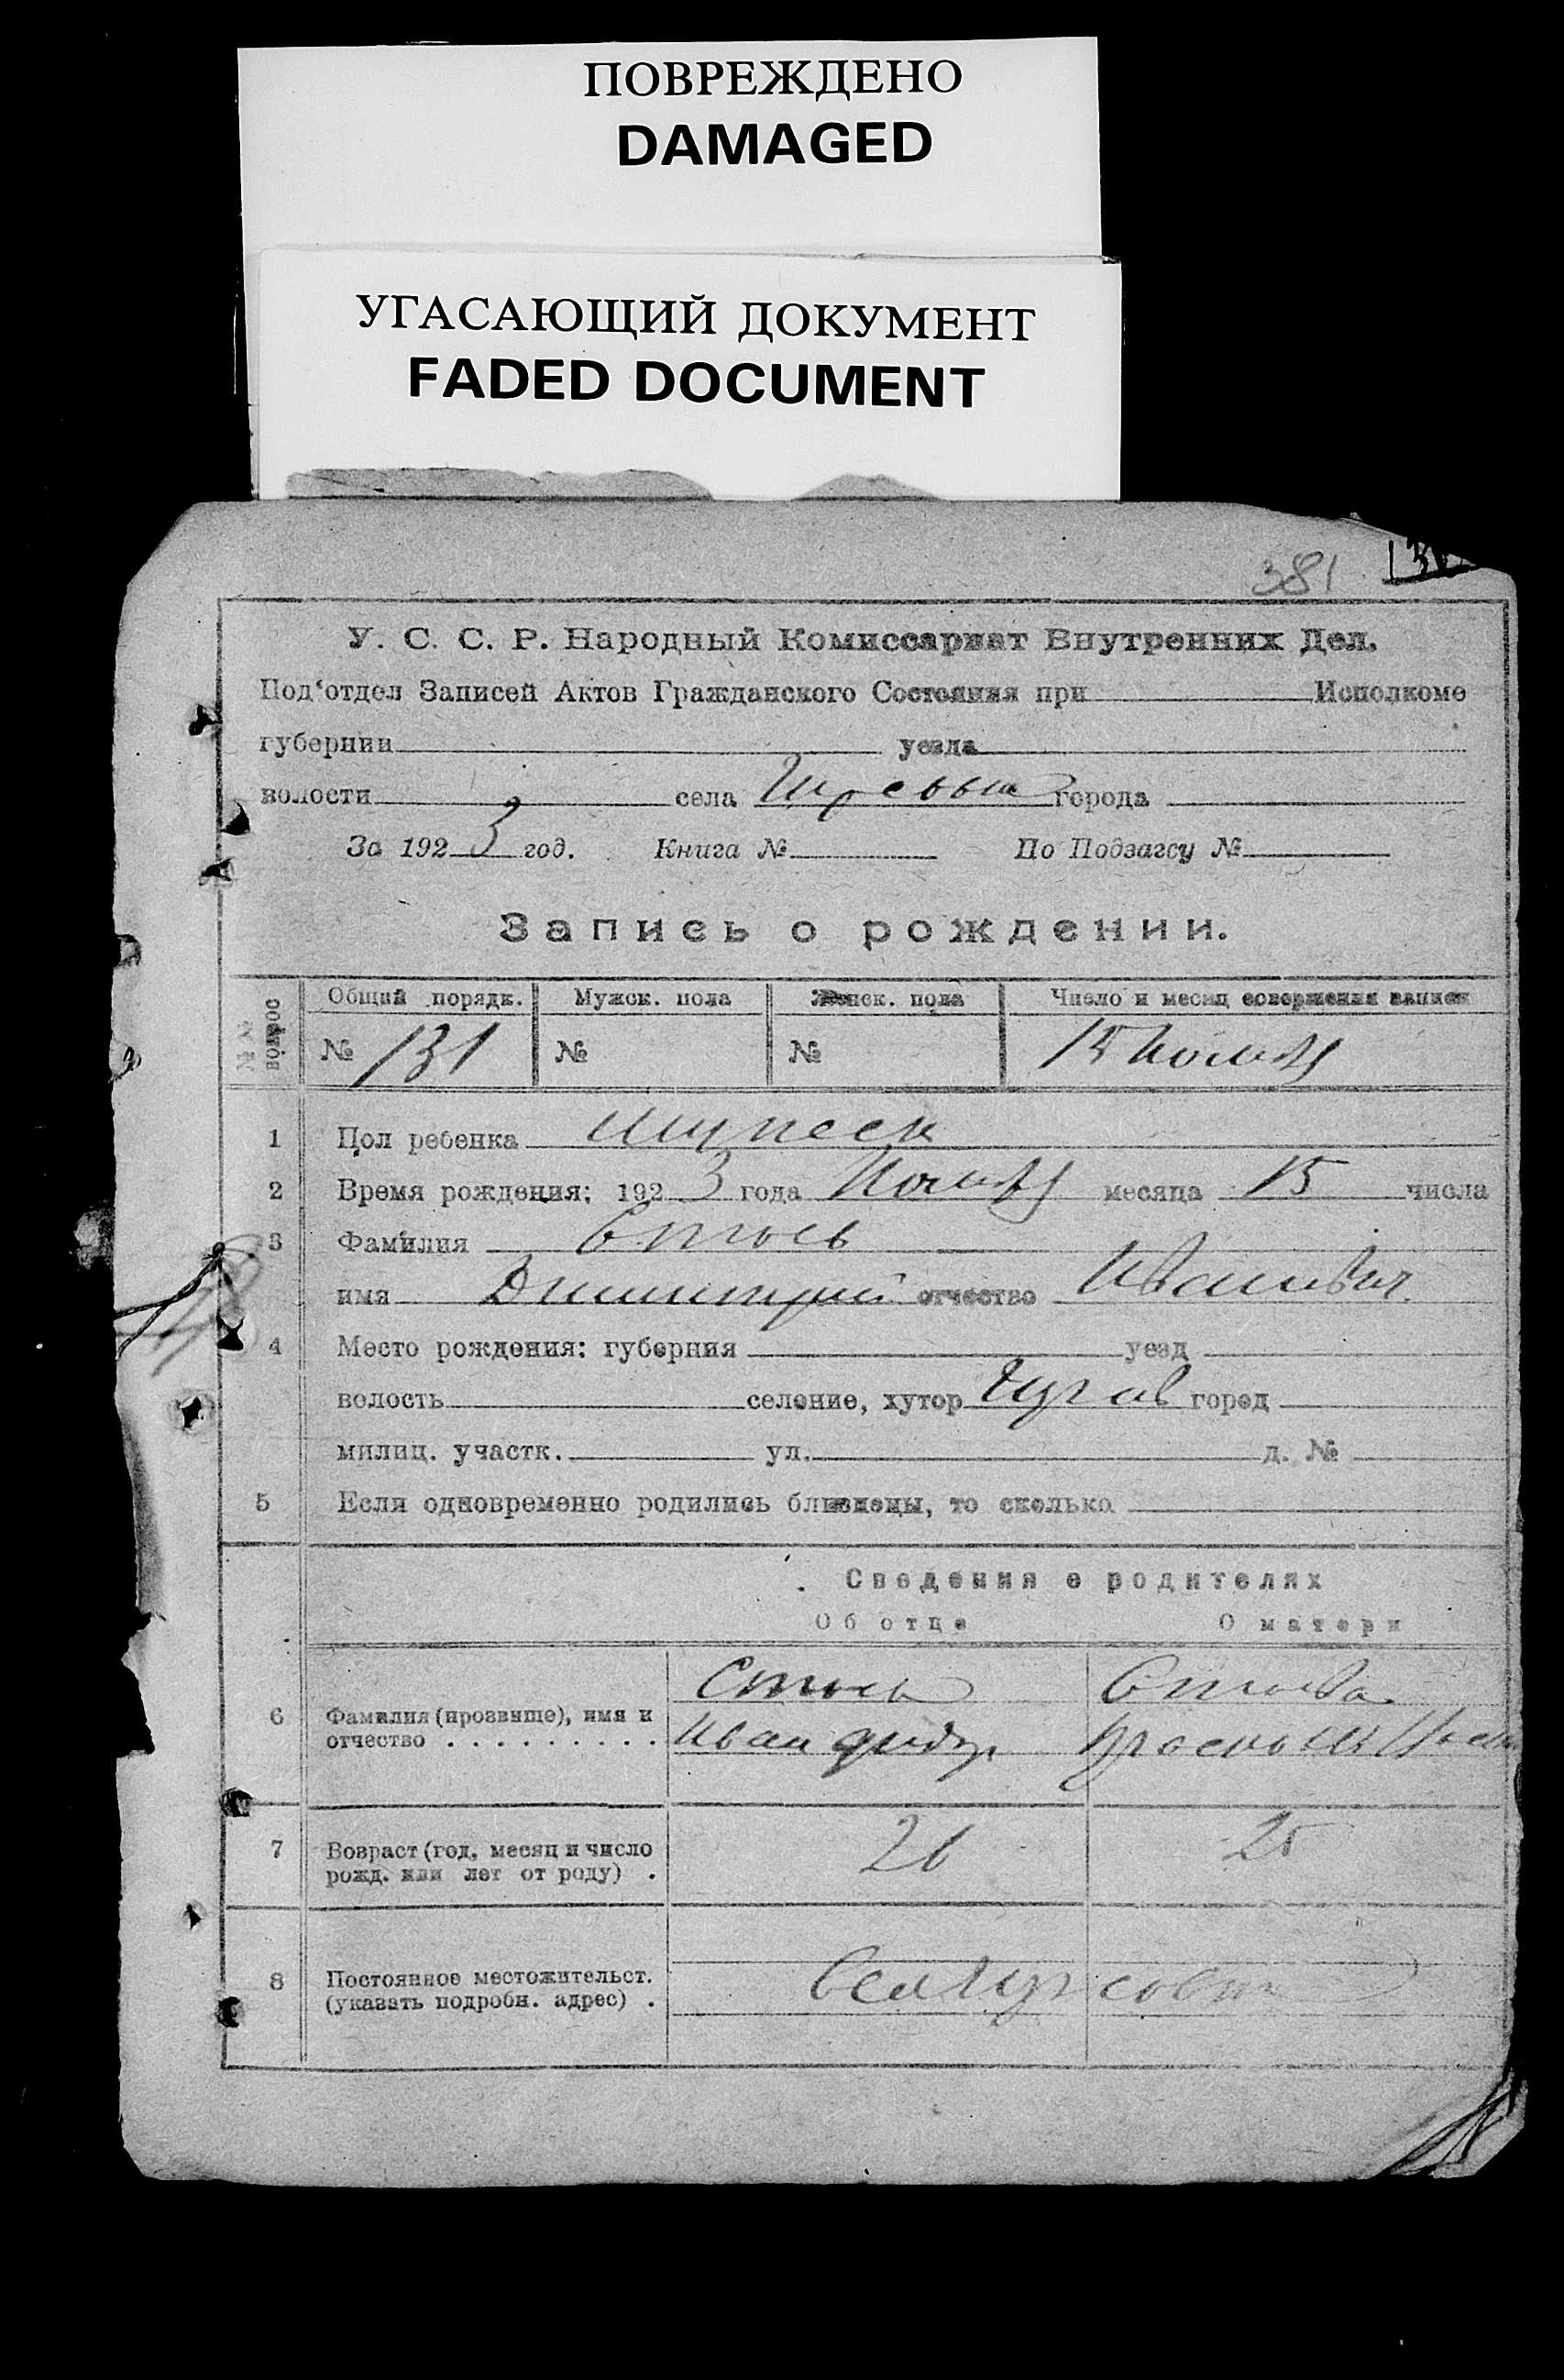 ПОВРЕЖДЕНО
DAMAGED
УГАСАЮЩИЙ ДОКУМЕНТ
FADED DOCUMENT
381
У. С. С. Р. Народный Комиссариат Внутренних Дел.
Под'отдел Записей Актов Гражданского Состояния при Исполкоме
губернии уезда
волости села города
За 1923 год. Книга № По Подзагсу №
Запись о рождении.
№№ вопрос Общий порядк. Мужск. пола Женск. пола Число и месяц совершения записи
№ 131 № № 15
1 Пол ребенка
2 Время рождения: 1923 года месяца 15 числа
3 Фамилия Стось
имя Димитрий отчество Иванович
4 Место рождения: губерния уезд
волость селение, хутор город
милиц. участк. ул. д. №
5 Если одновременно родились близнецы, то сколько
Сведения о родителях
Об отце О матери
Стось
6 Фамилия (прозвище), имя и
отчество Иван
7 Возраст (год, месяц и число
рожд. или лет от роду) . 26 25
8 Постоянное местожительст.
(указать подробн. адрес) .